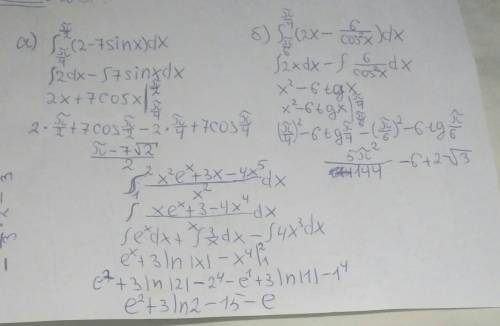 а) ∫_{π/4}^{π/2} (2-7sinx)dx
∫2dx - ∫7sinxdx
2x+7cosx|_{π/4}^{π/2}
2·π/2+7cosπ/2-2·π/4+7cosπ/4
(π-7√2)/2
б) ∫_{π/6}^{π/4} (2x - 6/cos²x)dx
∫2xdx - ∫ 6/cos²x dx
x²-6tgx
x²-6tgx|_{π/6}^{π/4}
(π/4)²-6tgπ/4-(π/6)²-6tgπ/6
5π²/144 -6+2√3
∫_1^2 (x²eˣ+3x-4x⁵)/x² dx
∫ (xeˣ+3-4x⁴)/x dx
∫eˣdx+∫3/x dx-∫4x³dx
eˣ+3ln|x|-x⁴|_1^2
e²+3ln|2|-2⁴-e¹+3ln|1|-1⁴
e²+3ln2-15-e